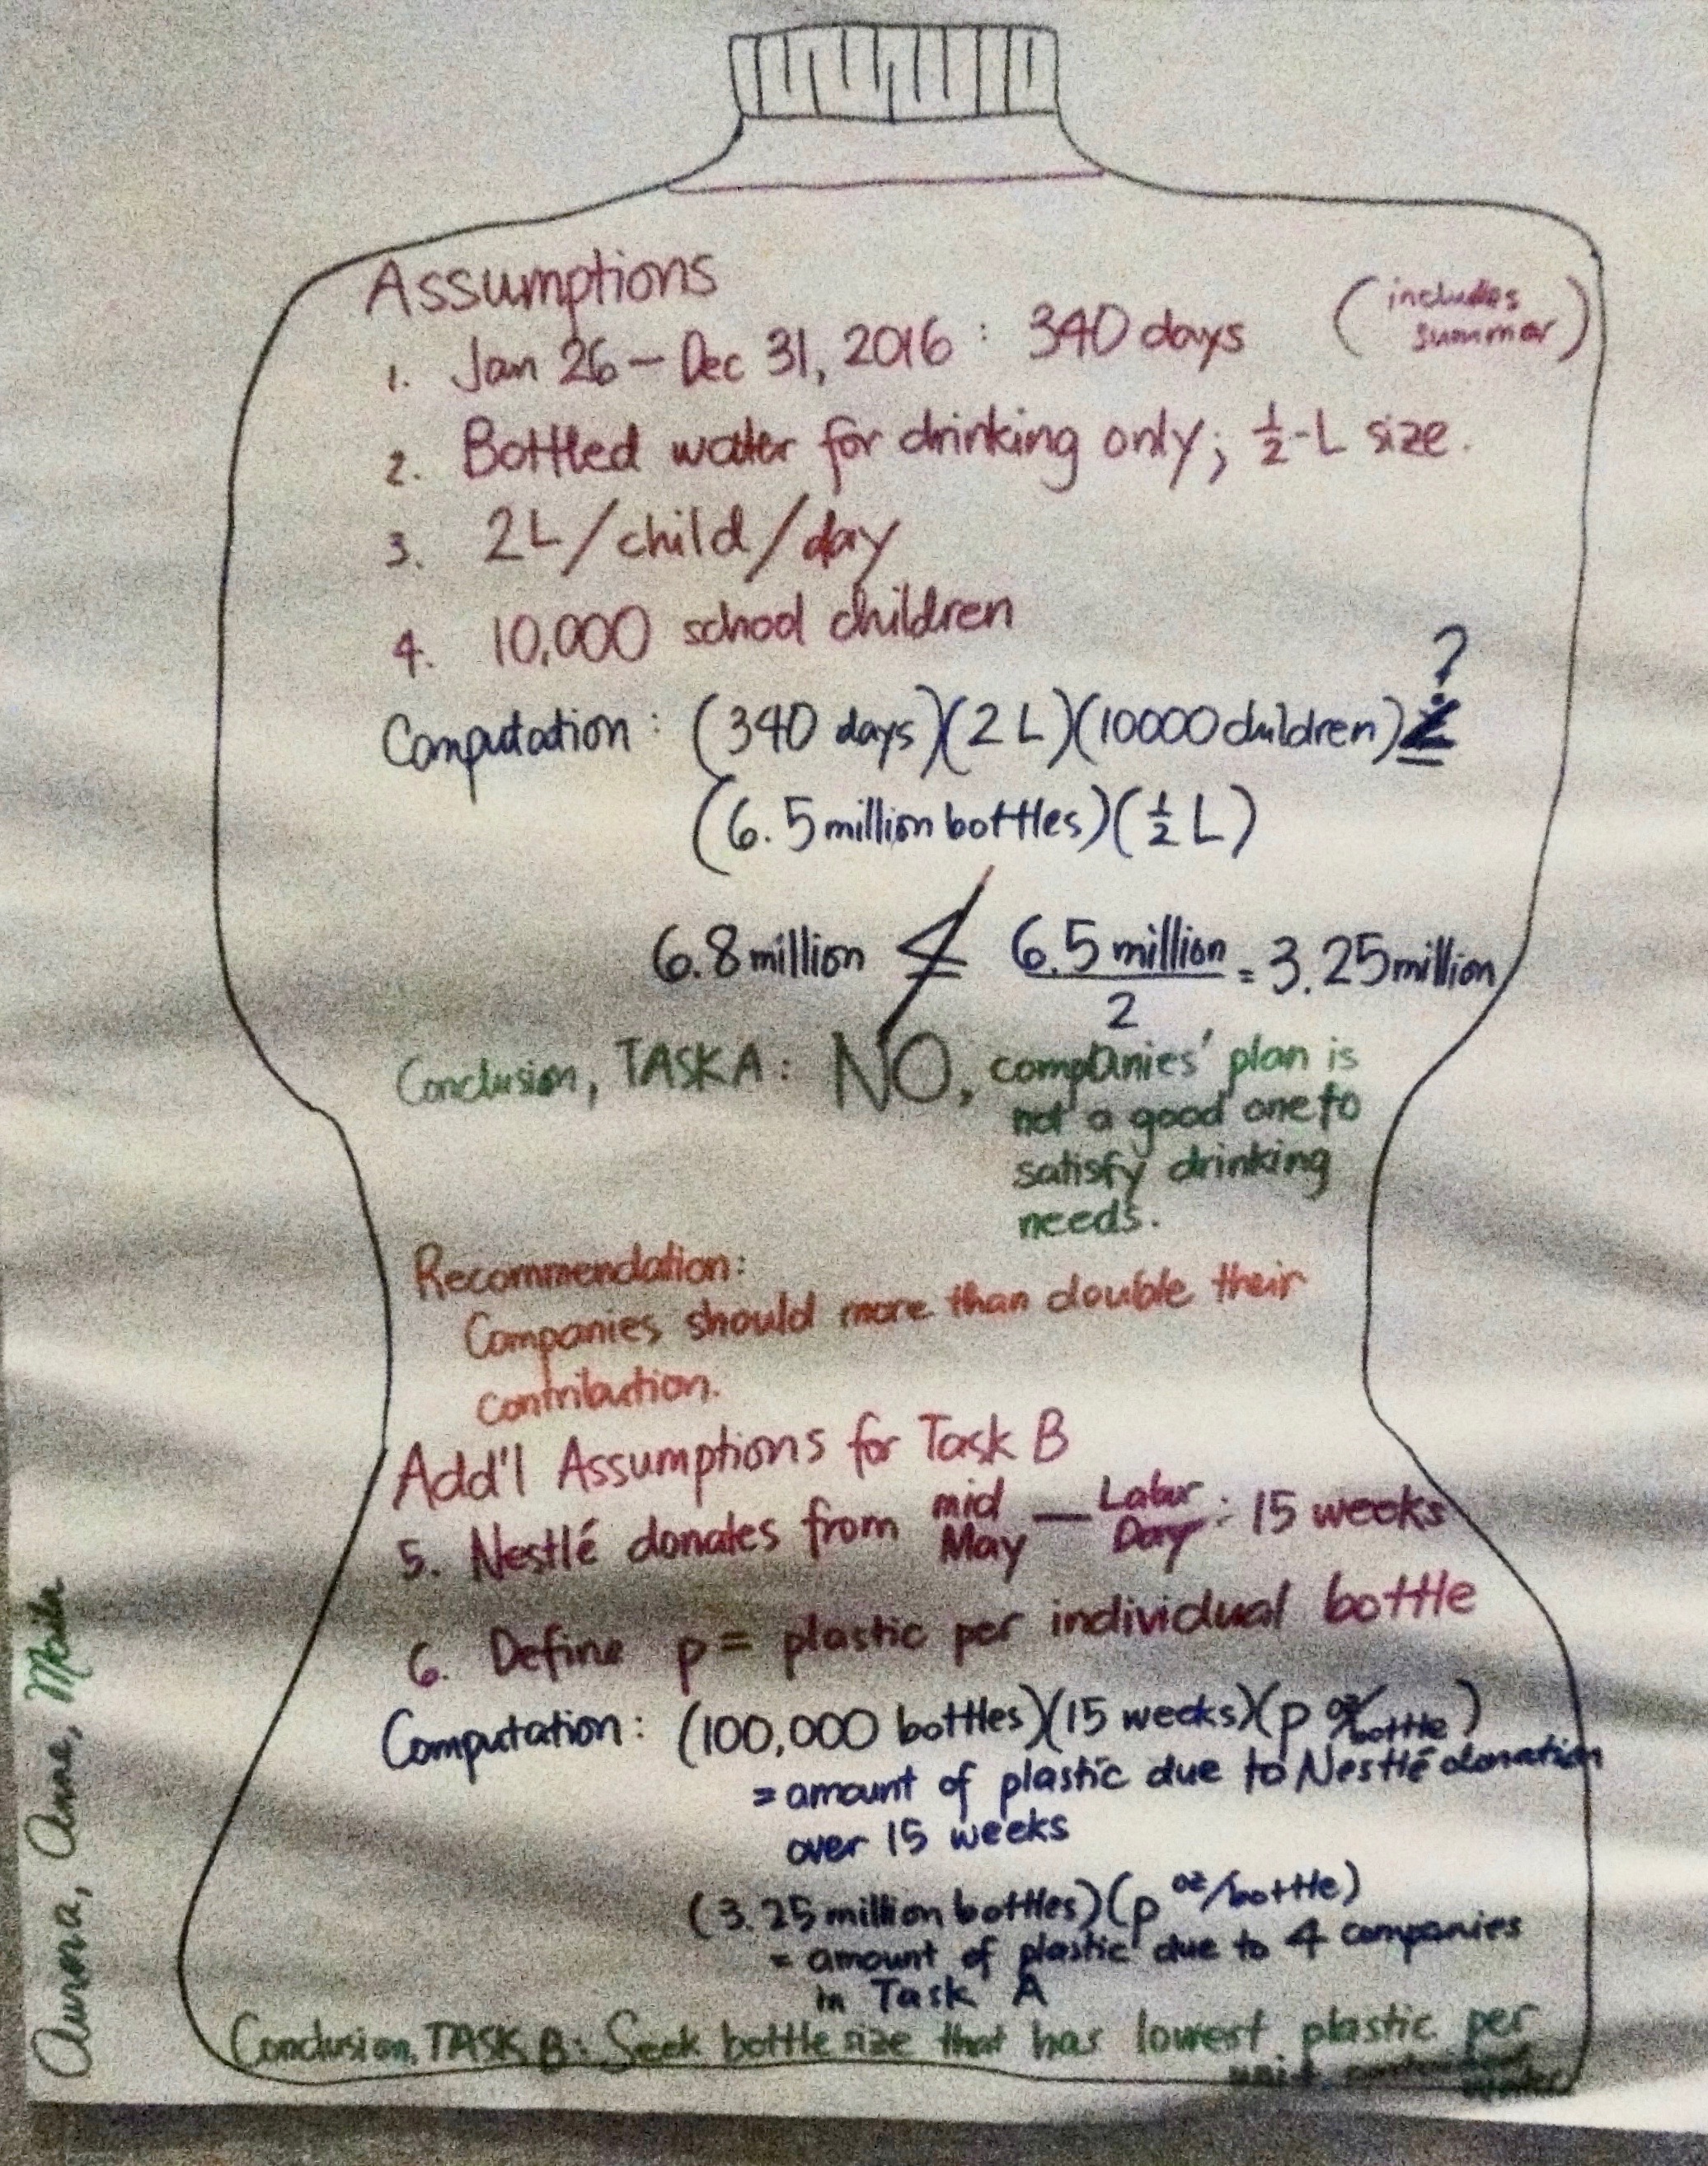 Assumptions
1. Jan 26 – Dec 31, 2016 : 340 days (includes summer)
2. Bottled water for drinking only; ½-L size.
3. 2L/child/day
4. 10,000 school children
?
Computation: (340 days)(2 L)(10000 children) ≤
(6.5 million bottles)(½ L)
6.8 million ≰ 6.5 million / 2 = 3.25 million
Conclusion, TASK A: NO, companies' plan is
not a good one to
satisfy drinking
needs.
Recommendation:
Companies should more than double their
contribution.
Add'l Assumptions for Task B
5. Nestlé donates from mid May — Labor Day : 15 weeks
6. Define p = plastic per individual bottle
Computation: (100,000 bottles)(15 weeks)(p oz/bottle)
= amount of plastic due to Nestlé donation
over 15 weeks
(3.25 million bottles)(p oz/bottle)
= amount of plastic due to 4 companies
in Task A
Conclusion, TASK B: Seek bottle size that has lowest plastic per
unit water
Aurora, Anne, Maila